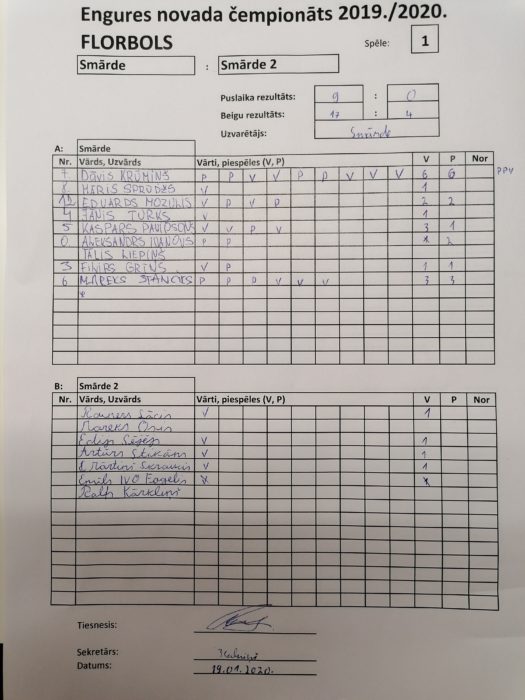 Engures novada čempionāts 2019./2020.
FLORBOLS
Spēle: 1
Smārde : Smārde 2
Puslaika rezultāts: 9 : 0
Beigu rezultāts: 17 : 4
Uzvarētājs: Smārde
A: Smārde
Nr. Vārds, Uzvārds Vārti, piespēles (V, P) V P Nor
7 Dāvis KRŪMIŅŠ P P V V P P V V V 6 6 PPV
8 MĀRIS SPRUDŽS V 1
12 EDUARDS V P V P 2 2
4 JĀNIS TURKS V 1
5 KASPARS V V P V 3 1
0 ALEKSANDRS IVANOVS P P 2
TĀLIS LIEPIŅŠ
3 GRĪNS V P 1 1
6 MAREKS P P P V V V 3 3
B: Smārde 2
Nr. Vārds, Uzvārds Vārti, piespēles (V, P) V P Nor
Lācis V 1
Mareks
V 1
Artūrs V 1
V 1
Emīls IVO
Ralfs Kārkliņš
Tiesnesis:
Sekretārs:
Datums: 19.01.2020.